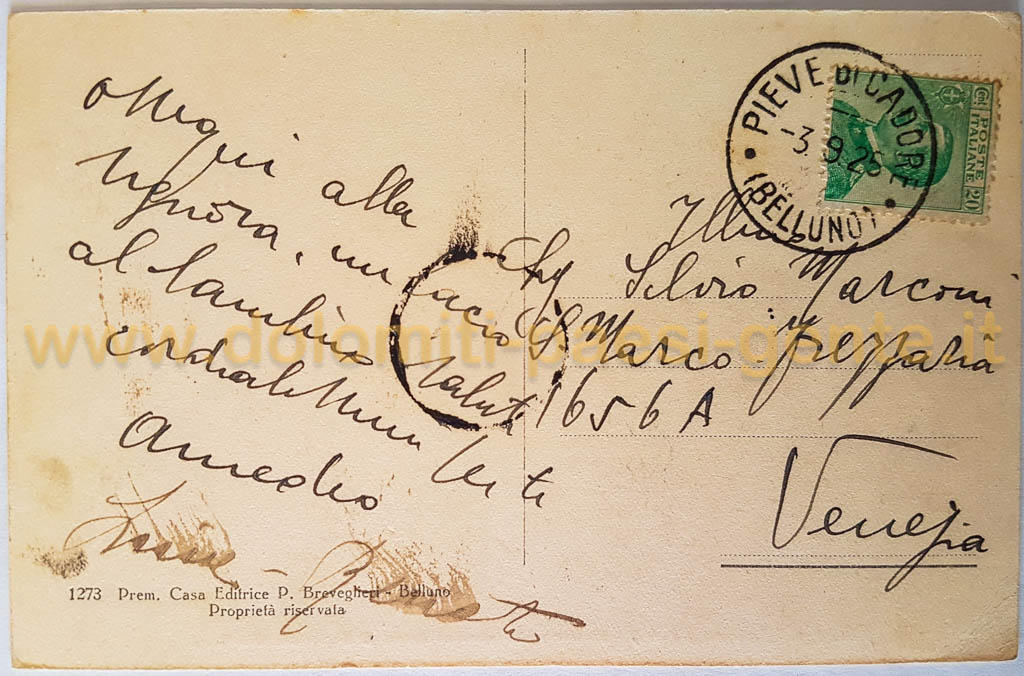 ossequi alla
signora, un bacio
al bambino saluti
cordialissimi
Amedeo
1273 Prem. Casa Editrice P. Breveglieri - Belluno
Proprietà riservata
PIEVE DI CADORE
3.9.25
(BELLUNO)
POSTE ITALIANE
Cent. 20
Illmo
Silvio Marconi
S Marco Frezzaria
1656 A
Venezia
www.dolomiti-paesi-gente.it